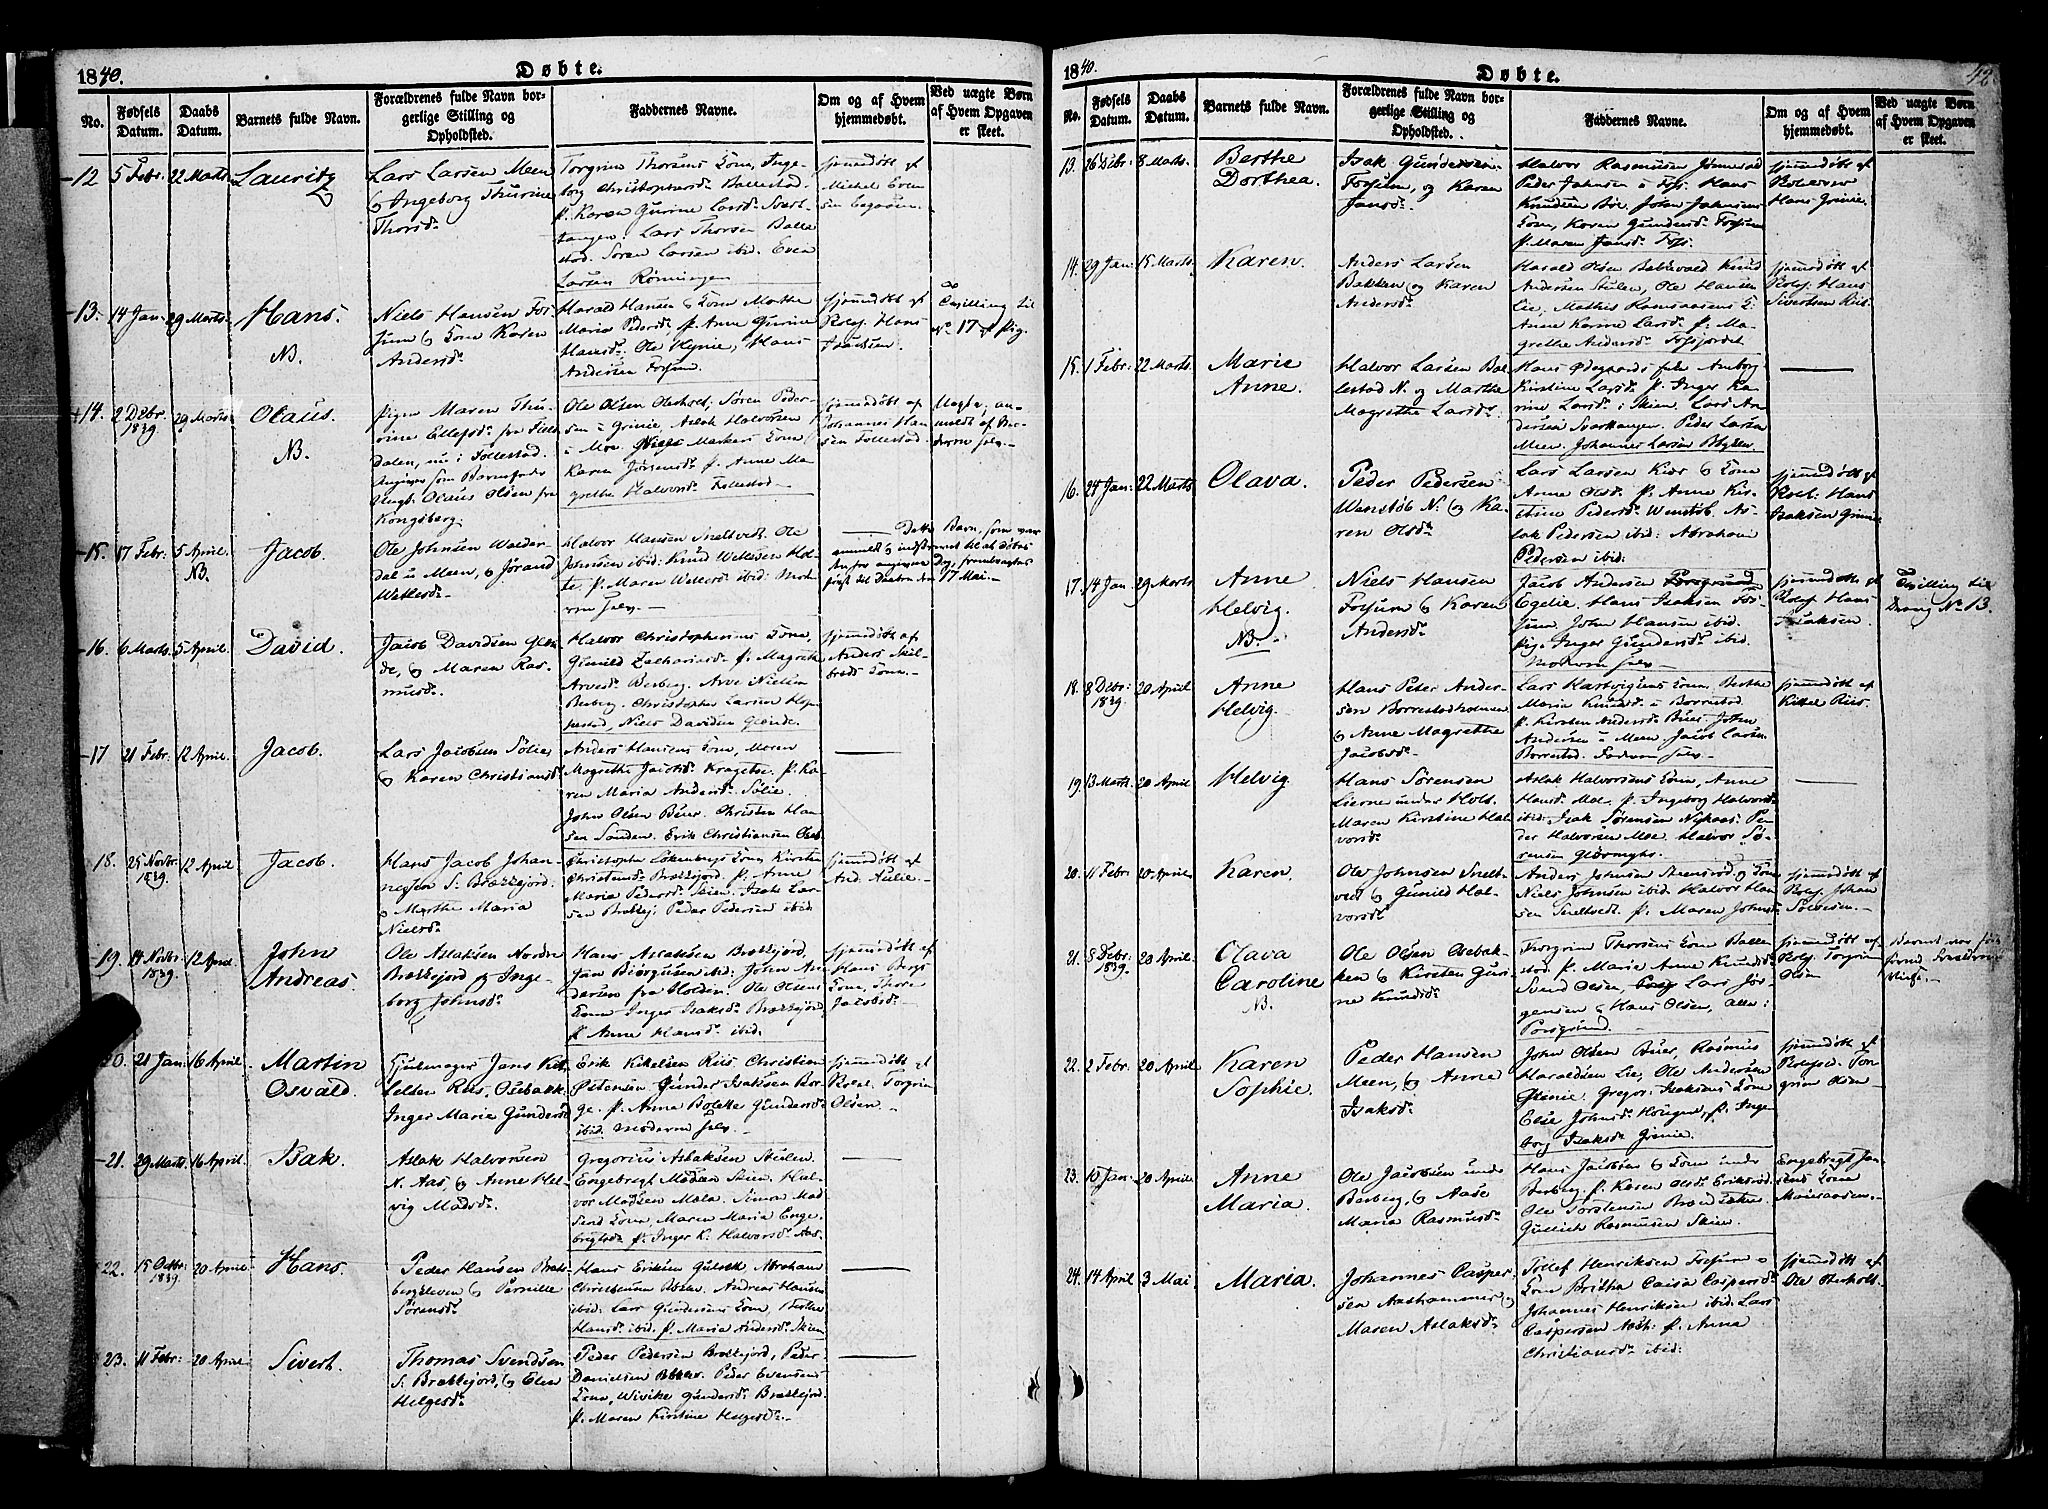 1840.
Døbte.
No.
Fødsels Datum.
Daabs Datum.
Barnets fulde Navn.
Forældrenes fulde Navn borgerlige Stilling og Opholdsted.
Faddernes Navne.
Om og af Hvem hjemmedøbt.
Ved uægte Børn af Hvem Opgaven er skeet.
12
5 Febr:
22 Marts
Lauritz
Lars Larsen Meen
& Ingeborg Thurine
Thorsd.
Torgrim Thorsens Kone, Inge-
borg Christophersd. Ballestad.
p. Karen Gurine Larsd. Svart-
tangen. Lars Thorsen Balle
stad. Søren Larsen ibid. Even
Larsen Rønningen
hjemmedøbt af
Michel Even
sen
13.
14 Jan:
29 Marts
Hans.
N.
Niels Hansen Fos-
sum & Kone Karen
Andersd.
Harald Hansens Kone Marthe
Maria Pedersd. p. Anne Gurine
Hansd. Ole Hynie, Hans
Andersen Fossum.
hjemmedøbt af
Hans
Isacksen.
Tvilling til
No 17 af Pig.
14.
2 Debr.
1839.
29 Marts.
Olaus.
N.
Pigen Maren Thu-
rine Ellefsd. fra
dalen, nu i Follestad.
Angiver som Barnefader
Ungk. Olaus Olsen fra
Kongsberg.
Ole Olsen Oleholt, Søren Peder-
sen i Grinie, Aslak Halvorsen
i Moe. Niels Markus. Kone
Karen Jørensd. p. Anne Ma-
grethe Halvorsd. Follestad.
hjemmedøbt af
Johannes Han
sen Follestad.
Uægte; an-
meldt af
selv.
15.
17 Febr:
5 April.
N.
Jacob.
Ole Johnsen Walder-
dal u Meen, & Jørand
Wetlesd.
Halvor Hansen Sneltvedt. Ole
Johnsen ibid: Knud Wetlesen Hol-
te. p. Maren Wetlesd. ibid: Mod-
ren selv.
Dette Barn, som var
anmeldt & indskrevet til at døbes
den her angivne Dag, frembragtes
først til Daaben den 17 Mai.
16.
6 Marts.
5 April.
David.
Jacob Davidsen Glen-
de, & Maren Ras-
musd.
Halvor Christophersens Kone
Gunild Zachariasd. p. Magrethe
Arvesd. Berberg. Arve Nielsen
Berberg. Christopher Larsen Hop-
pestad, Niels Davidsen Glende.
hjemmedøbt af
Anders
Kone.
17
21 Febr:
12 April.
Jacob.
Lars Jacobsen Sølie
& Karen Christiansd.
Anders Hansens Kone, Maren
Magrethe Jacobsd. Kragetse. p. Ka-
ren Maria Andersd. Sølie.
John Olsen Buer. Christen Han-
sen Sanden. Erik Christiansen
18.
25 Novbr.
1839.
12 April
Jacob.
Hans Jacob Johan-
nesen S. Brækkejord.
& Marthe Maria
Nielsd.
Christopher Kone, Kirsten
Christensd. Brækkejord. p. Anne
Maria Pedersd. Skien. Isak Lar-
sen Brækkej: Peder Pedersen ibid.
hjemmedøbt af
And. Aulie.
19.
14 Novbr.
1839.
12 April
John
Andreas.
Ole Aslaksen Nordre
Brækkejord & Inge-
borg Johnsd.
Hans Aslaksen Brækkejord,
ibid: John An-
dersen fra Holden. Ole Olsens
Kone Inger Isaksd. Brækkejord
p. Anne Hansd. ibid.
hjemmedøbt af
Hans Bergs
Kone, Thore
Jacobsd.
20.
21 Jan:
16 April.
Martin
Osvald.
Hjulmager Jans Kit-
telsen Riis, Osebakk.
Inger Marie Gundersd.
Erik Kittelsen Riis Christian
Østensen Gunder Isaksen Bor-
ge. p. Anna Bolette Gundersd.
ibid. Moderen selv.
hjemmedøbt af
Torgrim
Olsen.
21.
29 Marts.
16 April.
Isak.
Aslak Halvorsen
N. Aas, & Anne Hel-
vig Madsd.
Gregorius Aslaksen Stulen.
Engebregt Madsen Skien. Hal-
vor Madsen Mæla. Simon Mad
sens Kone, Maren Maria Enge-
brigtsd. p. Inger K. Halvorsd. Aas.
22.
15 Octbr.
1839.
20 April
Hans.
Peder Hansen Brats-
bergkleven & Pernille
Sørensd.
Hans Eriksen Gulset. Abraham
Christensen . Andreas Hansen
ibid. Lars Gundersens Kone, Berthe
Hansd. ibid. p. Maria Andersd. Skien
23.
11 Febr:
20 April
Sivert.
Thomas Svendsen
S. Brækkejord, & Elen
Helgesd.
Peder Pedersen Brækkejord, Peder
Danielsen . Peder Evensens
Kone, Wivike Gundersd. Brækkejord.
p. Maren Kirstine Helgesd.
1840.
Døbte.
42
No.
Fødsels Datum.
Daabs Datum.
Barnets fulde Navn.
Forældrenes fulde Navn borgerlige Stilling og Opholdsted.
Faddernes Navne.
Om og af Hvem hjemmedøbt.
Ved uægte Børn af Hvem Opgaven er skeet.
13.
26 Debr:
8 Marts.
Berthe
Dorthea.
Isak Gundersen
Fossum, og Karen
Jansd.
Halvor Rasmusen Jønnevad
Peder Johnsen i Foss. Hans
Knudsen Bøe. John Johnsens
Kone, Karen Gundersd. Fossum
p. Maren Jansd. Foss.
hjemmedøbt af
Hans Grinie.
14.
29 Jan:
15 Marts.
Karen.
Anders Larsen
Bakken & Karen
Andersd.
Harald Olsen Knud
Andersen Stulen, Ole Hansen
Lie, Mathis Rasmussens K.
Anne Karine Larsd. p. Ma-
grethe Andersd.
hjemmedøbt af
Hans
Sivertsen Riis.
15.
1 Febr:
22 Marts.
Marie
Anne.
Halvor Larsen Bal-
lestad N. og Marthe
Magrethe Larsd.
Hans Ødegaards
Kirstine Larsd. p. Inger Ka-
rine Larsd. i Skien. Lars An-
dersen Svarttangen. Peder Larsen
Meen. Johannes Larsen
16.
24 Jan:
22 Marts
Olava.
Peder Pedersen
Wenstøb N: og Ka-
ren Olsd.
Lars Larsen Kiær & Kone
Anne Olsd. p. Anne Kir-
stine Pedersd. Wenstøb. As-
lak Pedersen ibid: Abraham
Pedersen ibid:
hjemmedøbt af
Hans
Isaksen Grinie
17.
14 Jan:
29 Marts.
Anne
Helvig.
N.
Niels Hansen
Fossum & Karen
Andersd.
Jacob Andersen Porsgrund
Egelie. Hans Isaksen Fos-
sum. John Hansen ibid.
Pig. Inger Gundersd. ibid.
Modren selv.
hjemmedøbt af
Hans
Isaksen.
Tvilling til
Dreng No. 13.
18.
8 Debr:
1839.
20 April
Anne
Helvig.
Hans Peter Ander-
sen Borrestadholmen
& Anne Magrethe
Jacobsd.
Lars Hartvigsens Kone, Berthe
Maria Knudsd. i Borrestad.
p. Kirsten Andersd. Buer. John
Andersen i Meen. Jacob Larsen
Borrestad. Faderen selv.
hjemmedøbt af
Kittel Riis.
19.
13 Marts.
20 April
Helvig
Hans Sørensen
Lierne under Holt.
Maren Kirstine Hal-
vorsd.
Aslak Halvorsens Kone, Anne
Hansd. Moe. p. Ingeborg Halvorsd.
ibid. Isak Sørensen Nykaas. Pe-
der Halvorsen Moe. Halvor Sø-
rensen Glasmyhr.
20.
11 Febr:
20 April
Karen.
Ole Johnsen Snelt-
vedt & Gunild Hal-
vorsd.
Anders Johnsen & Kone
Niels Johnsen ibid. Halvor Han-
sen Sneltvedt. p. Maren Johnsd.
hjemmedøbt af
Johan
Solvesen.
21.
8 Debr:
1839.
20 April.
Olava
Caroline
N.
Ole Olsen Osebak-
ken & Kirsten Guri-
ne Knudsd.
Torgrim Thorsens Kone Balle-
stad. p. Maria Anne Knudsd.
Svend Olsen, Lars Jør-
gensen & Hans Olsen, alle i
Porsgrund.
hjemmedøbt af
Torgrim
Olsen
Barnet var født
førend Forældrenes
22.
2 Febr:
20 April
Karen
Sophie.
Peder Hansen
Meen, & Anne
Isaksd.
John Olsen Buer, Rasmus
Haraldsen Lie, Ole Andersen
Grinie. Gregor Isaksens Kone
Else Johnsd. Haugene, p. Inge-
borg Isaksd. Grinie.
hjemmedøbt af
Tor-
grim Olsen
23.
10 Jan:
20 April.
Anne
Maria.
Ole Jacobsen under
Berberg, & Aase
Maria Rasmusd.
Hans Jacobsen & Kone under
Berberg. p. Karen Olsd. Eriksrød.
Ole Torstensen
Gullich Rasmusen Skien.
Engebregt Jan-
sens Kone
24.
14 April
3 Mai
Maria.
Johannes Casper-
sen Aashammer &
Maren Aslaksd.
Tollef Henriksen Fossum &
Kone Britha Caisa Caspersd.
Johannes Henriksen ibid. Lars
Caspersen Aash: p. Anna
Christiansd. ibid:
hjemmedøbt af
Ole Oterholt.